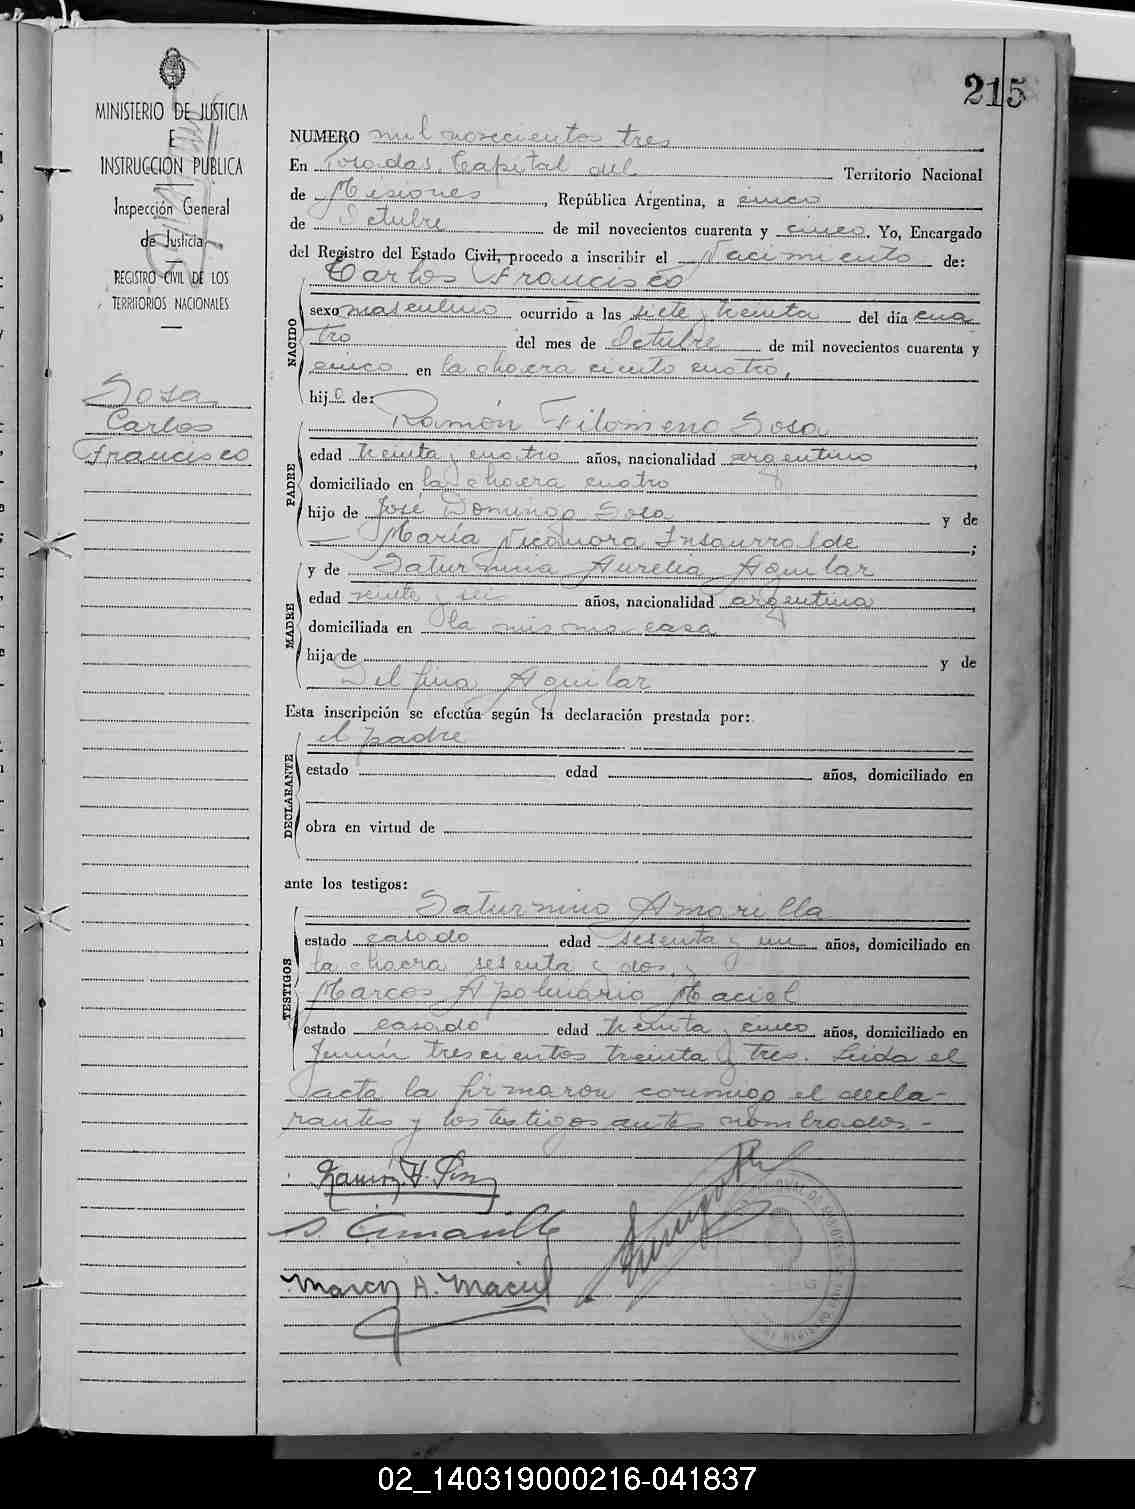 215
MINISTERIO DE JUSTICIA
E
INSTRUCCION PUBLICA
Inspección General
de Justicia
REGISTRO CIVIL DE LOS
TERRITORIOS NACIONALES
Sosa
Carlos
Francisco
NUMERO mil novecientos tres
En Posadas, Capital del Territorio Nacional
de Misiones, República Argentina, a cinco
de Octubre de mil novecientos cuarenta y cinco. Yo, Encargado
del Registro del Estado Civil, procedo a inscribir el Nacimiento de:
Carlos Francisco
NACIDO
sexo masculino ocurrido a las siete y treinta del día cua
tro del mes de Octubre de mil novecientos cuarenta y
cinco en la chacra ciento cuatro,
hijo de:
Ramón Filomeno Sosa
PADRE
edad treinta y cuatro años, nacionalidad argentino,
domiciliado en la chacra cuatro
hijo de José Domingo Sosa y de
María Nicanora Insaurralde;
y de Saturnina Aurelia Aguilar
MADRE
edad veinte y seis años, nacionalidad argentina,
domiciliada en la misma casa
hija de y de
Delfina Aguilar
Esta inscripción se efectúa según la declaración prestada por:
el padre
DECLARANTE
estado edad años, domiciliado en
obra en virtud de
ante los testigos:
Saturnino Amarilla
TESTIGOS
estado casado edad sesenta y un años, domiciliado en
la chacra sesenta y dos, y
Marcos Apolinario Maciel
estado casado edad treinta y cinco años, domiciliado en
Junín trescientos treinta y tres. Leida el
acta la firmaron conmigo el decla-
rantes y los testigos antes nombrados.-
Ramón F. Sosa
S. Amarilla
Marcos A. Maciel
02_140319000216-041837